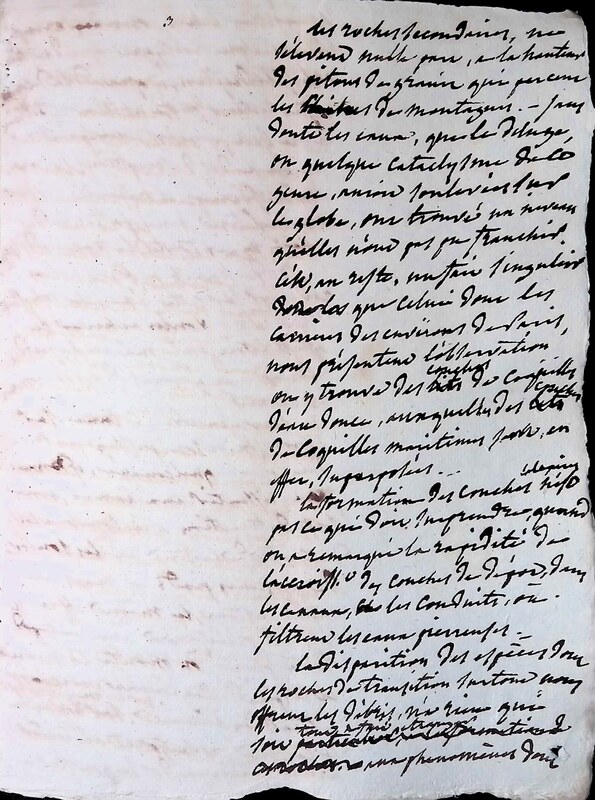 3
les roches secondaires, ne
s'élevent nulle part, a la hauteur
des pitons de granit qui percent
les des montagnes. — sans
doute les eaux, que le deluge,
ou quelque cataclysme de ce
genre, auroit soulevées sur
le globe, ont trouvé un niveau
qu'elles n'ont pas pu franchir.
c'est, au reste, un fait singulier
que celui dont les
carrieres des environs de Paris,
nous présentent l'observation
on y trouve des couches de coquilles
d'eau douce, auxquelles des couches
de coquilles maritimes sont, en
effet, superposées...
la formation des couches n'est
pas ce qui doit surprendre, quand
on a remarqué la rapidité de
l'accroiss.t des couches de dépot, dans
les canaux, les conduits, ou
filtrent les eaux pierreuses —
la disparition des espèces dont
les roches de transition surtout nous
offrent les débris, n'a rien qui
soit tout a fait etranger
aux phenomènes dont